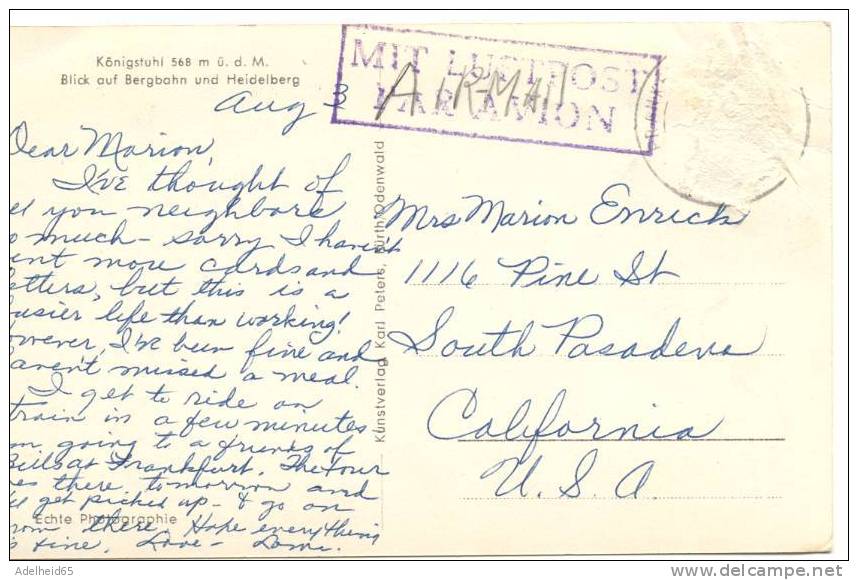 Königstuhl 568 m ü. d. M.
Blick auf Bergbahn und Heidelberg
MIT LUFTPOST
PAR AVION
AIR-MAIL
Aug 3
Dear Marion,
I've thought of
you neighbors
much - sorry I haven't
more cards and
but this is a
life than working!
I've been fine and
haven't missed a meal.
I get to ride on
train in a few minutes
going to a friends of
Bills at Frankfurt. The tour
there tomorrow and
get picked up - & go on
from there. Hope everything
fine. Love -
Echte Photographie
Kunstverlag Karl Peters, Fürth/Odenwald
Mrs Marion Enrick
1116 Pine St
South Pasadena
California
U. S. A.
Adelheid65
delcampe.net